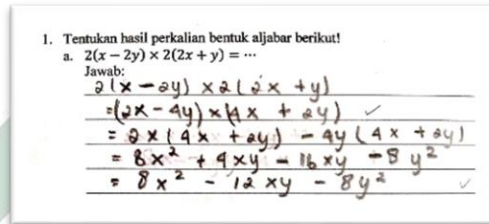 1. Tentukan hasil perkalian bentuk aljabar berikut!
a. 2(x − 2y) × 2(2x + y) = ⋯
Jawab:
2(x − 2y) × 2(2x + y)
= (2x − 4y) × (4x + 2y) ✓
= 2x(4x + 2y) − 4y(4x + 2y)
= 8x² + 4xy − 16xy − 8y²
= 8x² − 12xy − 8y² ✓